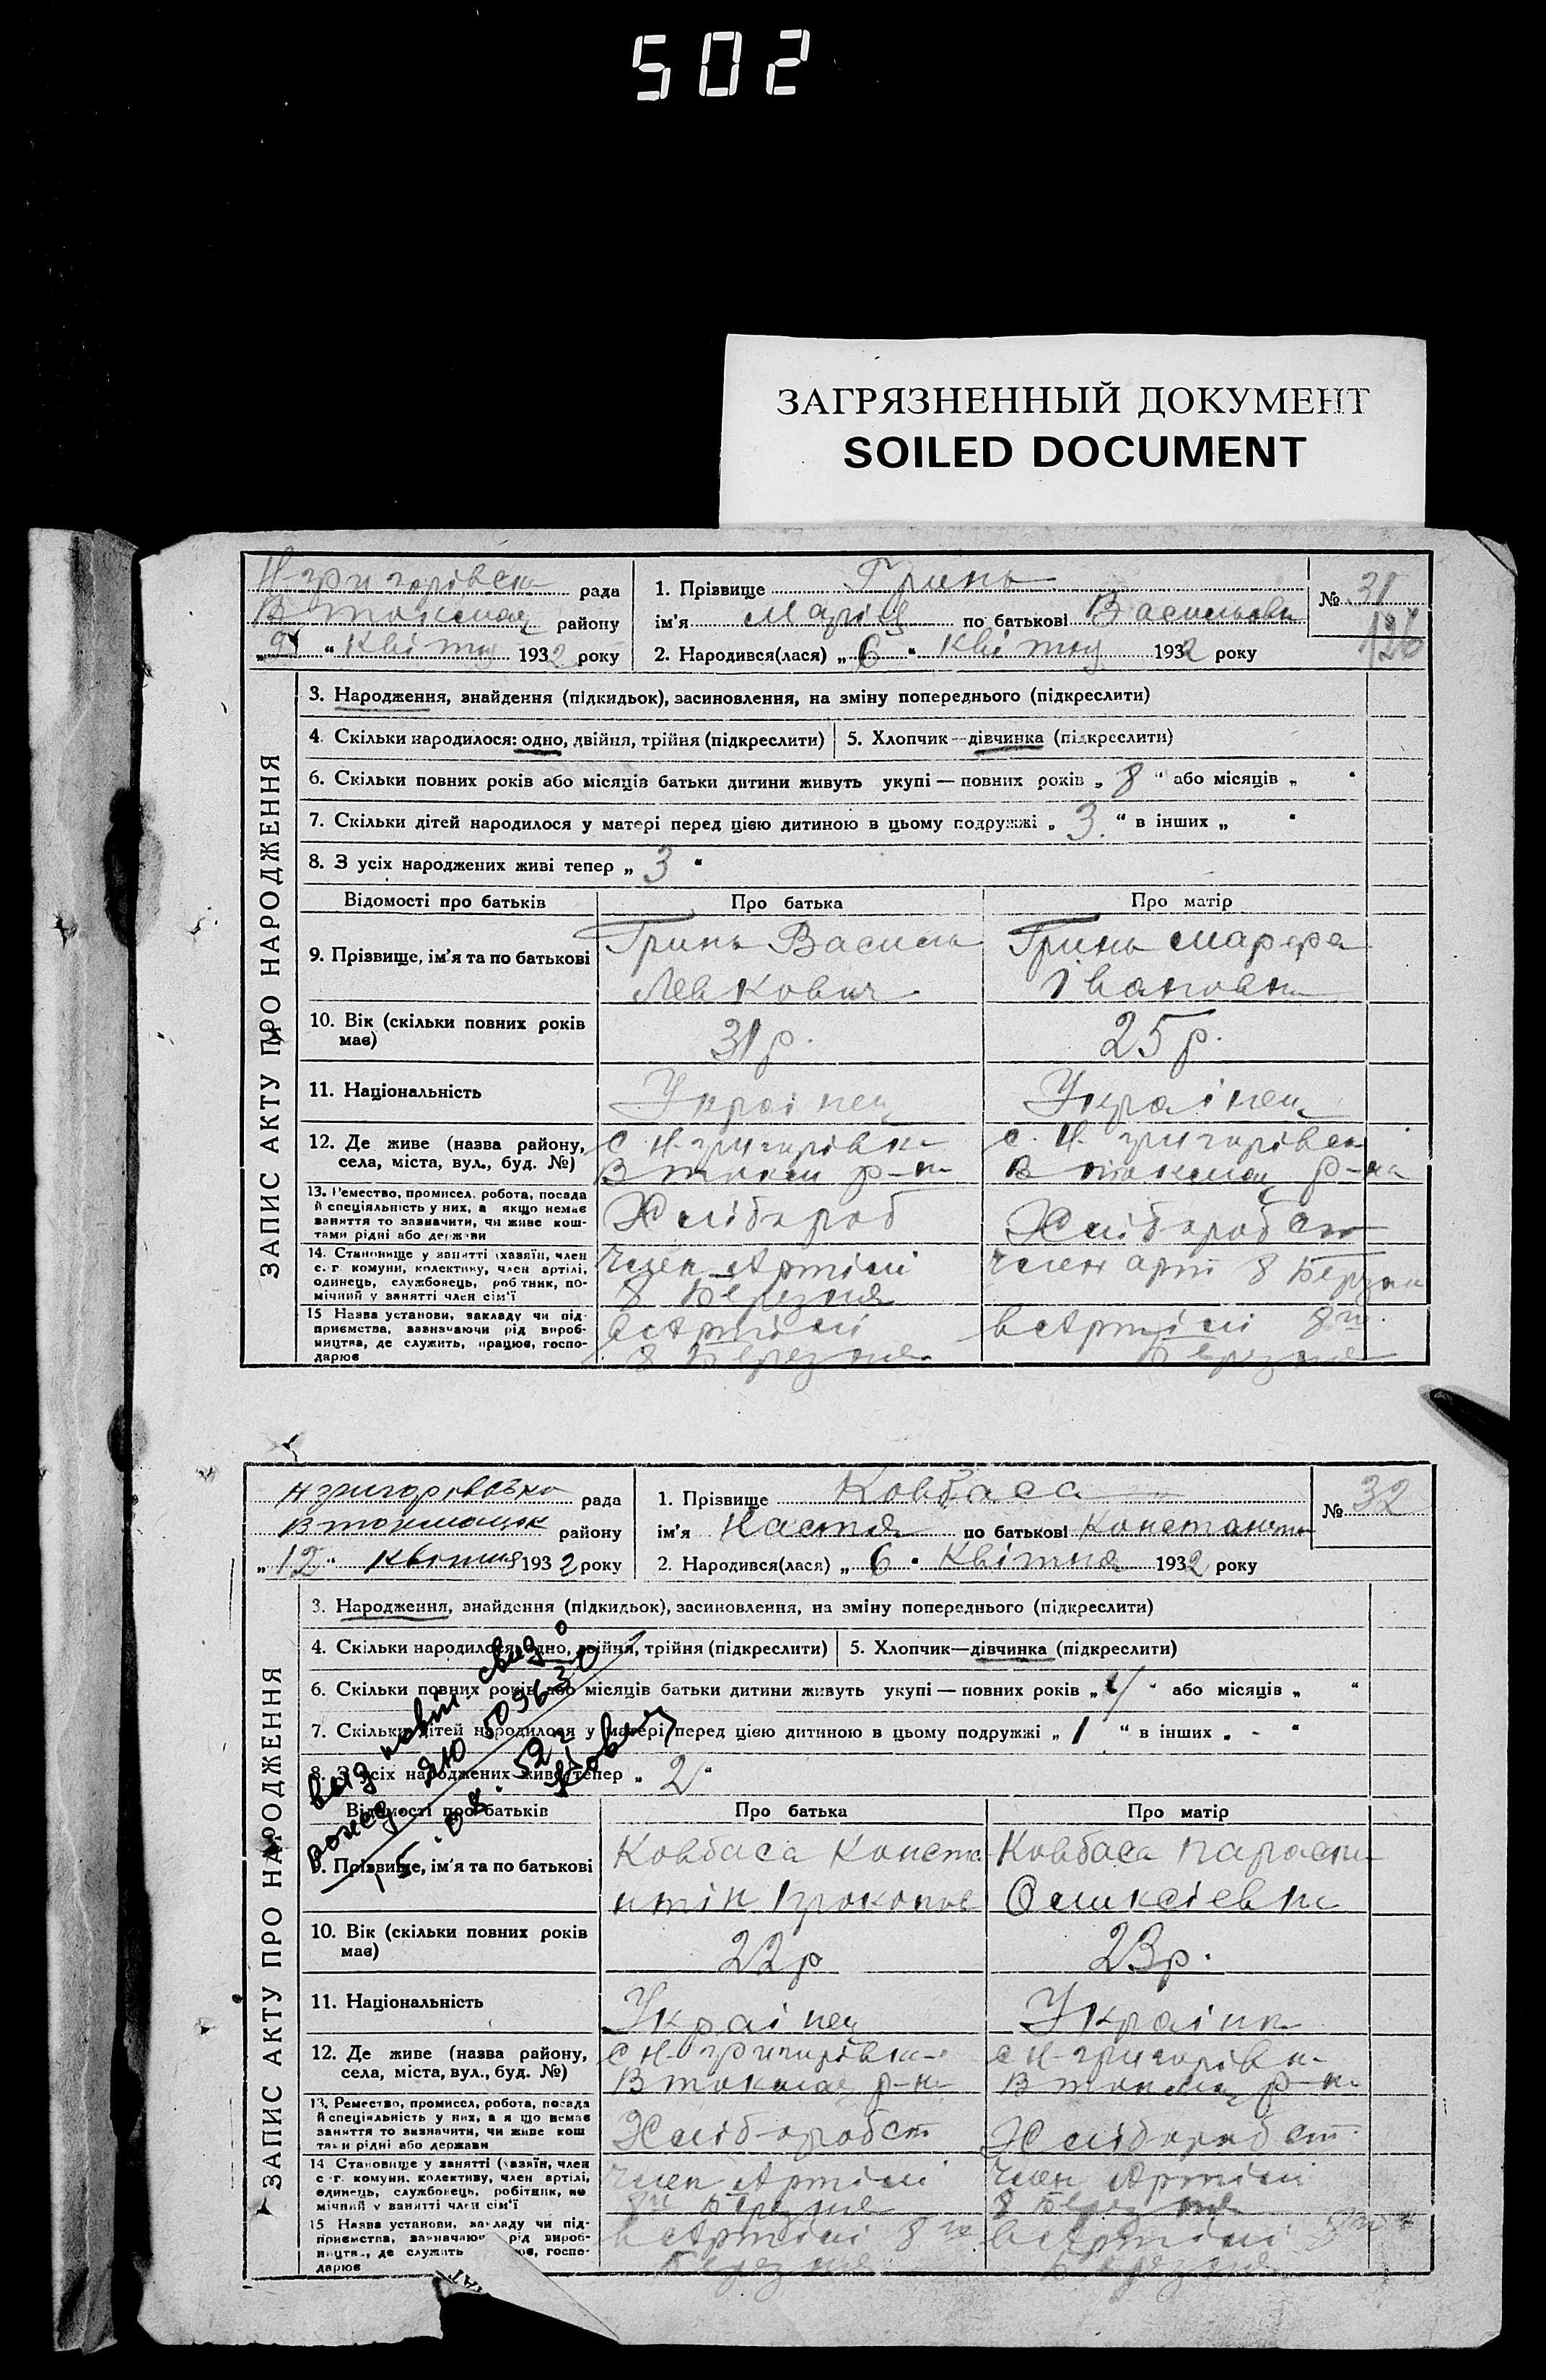 502
ЗАГРЯЗНЕННЫЙ ДОКУМЕНТ
SOILED DOCUMENT
Н-григорівська рада
В токмац району
"9" Квітня 1932 року
1. Прізвище Гринь
ім'я Марія по батькові Васильовн
2. Народився(лася) „6" Квітня 1932 року
№ 31
126
ЗАПИС АКТУ ПРО НАРОДЖЕННЯ
3. Народження, знайдення (підкидьок), засиновлення, на зміну попереднього (підкреслити)
4. Скільки народилося: одно, двійня, трійня (підкреслити) 5. Хлопчик—дівчинка (підкреслити)
6. Скільки повних років або місяців батьки дитини живуть укупі — повних років „8" або місяців „ "
7. Скільки дітей народилося у матері перед цією дитиною в цьому подружжі „3" в інших „ "
8. З усіх народжених живі тепер „3"
Відомості про батьків Про батька Про матір
9. Прізвище, ім'я та по батькові
Гринь Василь
Левкович
Гринь Марфа
Івановн
10. Вік (скільки повних років має)
31 р.
25 р.
11. Національність
Українец
Українец
12. Де живе (назва району,
села, міста, вул., буд. №)
с Н-григорівка
В токм р-н
с. Н. григорівка
В токмац р-на
13. Ремество, промисел, робота, посада
й спеціяльність у них, а якщо немає
заняття то зазначити, чи живе кош-
тами рідні або держави
Хлібороб
Хліборобст
14. Становище у занятті (хазяїн, член
с.-г. комуни, колективу, член артілі,
одинець, службовець, робітник, по-
мічний у занятті член сім'ї
Член Артілі
8 Березня
Член арт 8 Березня
15 Назва установи, закладу чи під-
приємства, зазначаючи рід вироб-
ництва, де служить, працює, госпо-
дарює
в Артілі
8 Березня
в Артілі 8го
Березня
Н григорівська рада
В токмацьк району
„12" квітня 1932 року
1. Прізвище Ковбаса
ім'я Настя по батькові Константин
2. Народився(лася) „6" Квітня 1932 року
№ 32
ЗАПИС АКТУ ПРО НАРОДЖЕННЯ
3. Народження, знайдення (підкидьок), засиновлення, на зміну попереднього (підкреслити)
4. Скільки народилося: одно, двійня, трійня (підкреслити) 5. Хлопчик—дівчинка (підкреслити)
6. Скільки повних років або місяців батьки дитини живуть укупі — повних років „4" або місяців „ "
7. Скільки дітей народилося у матері перед цією дитиною в цьому подружжі „1" в інших „-"
8. З усіх народжених живі тепер „2"
Відомості про батьків Про батька Про матір
9. Прізвище, ім'я та по батькові
Ковбаса Конста
нтін Прокопов
Ковбаса Параск
Олексієвн
10. Вік (скільки повних років має)
22 р
23 р.
11. Національність
Українец
Українк
12. Де живе (назва району,
села, міста, вул., буд. №)
с Н-григорівка
В токмац р-н
с Н-григорівка
В токмац р-н
13. Ремество, промисел, робота, посада
й спеціяльність у них, а якщо немає
заняття то зазначити, чи живе кош
тами рідні або держави
Хліборобст
Хліборобст
14 Становище у занятті (хазяїн, член
с.-г. комуни, колективу, член артілі,
одинець, службовець, робітник, по
мічний у занятті член сім'ї
Член Артілі
8 Березня
Член Артілі
8 Березня
15 Назва установи, закладу чи під-
приємства, зазначаючи рід вироб-
ництва, де служить госпо-
дарює
в Артілі 8го
Березня
в Артілі
Березня